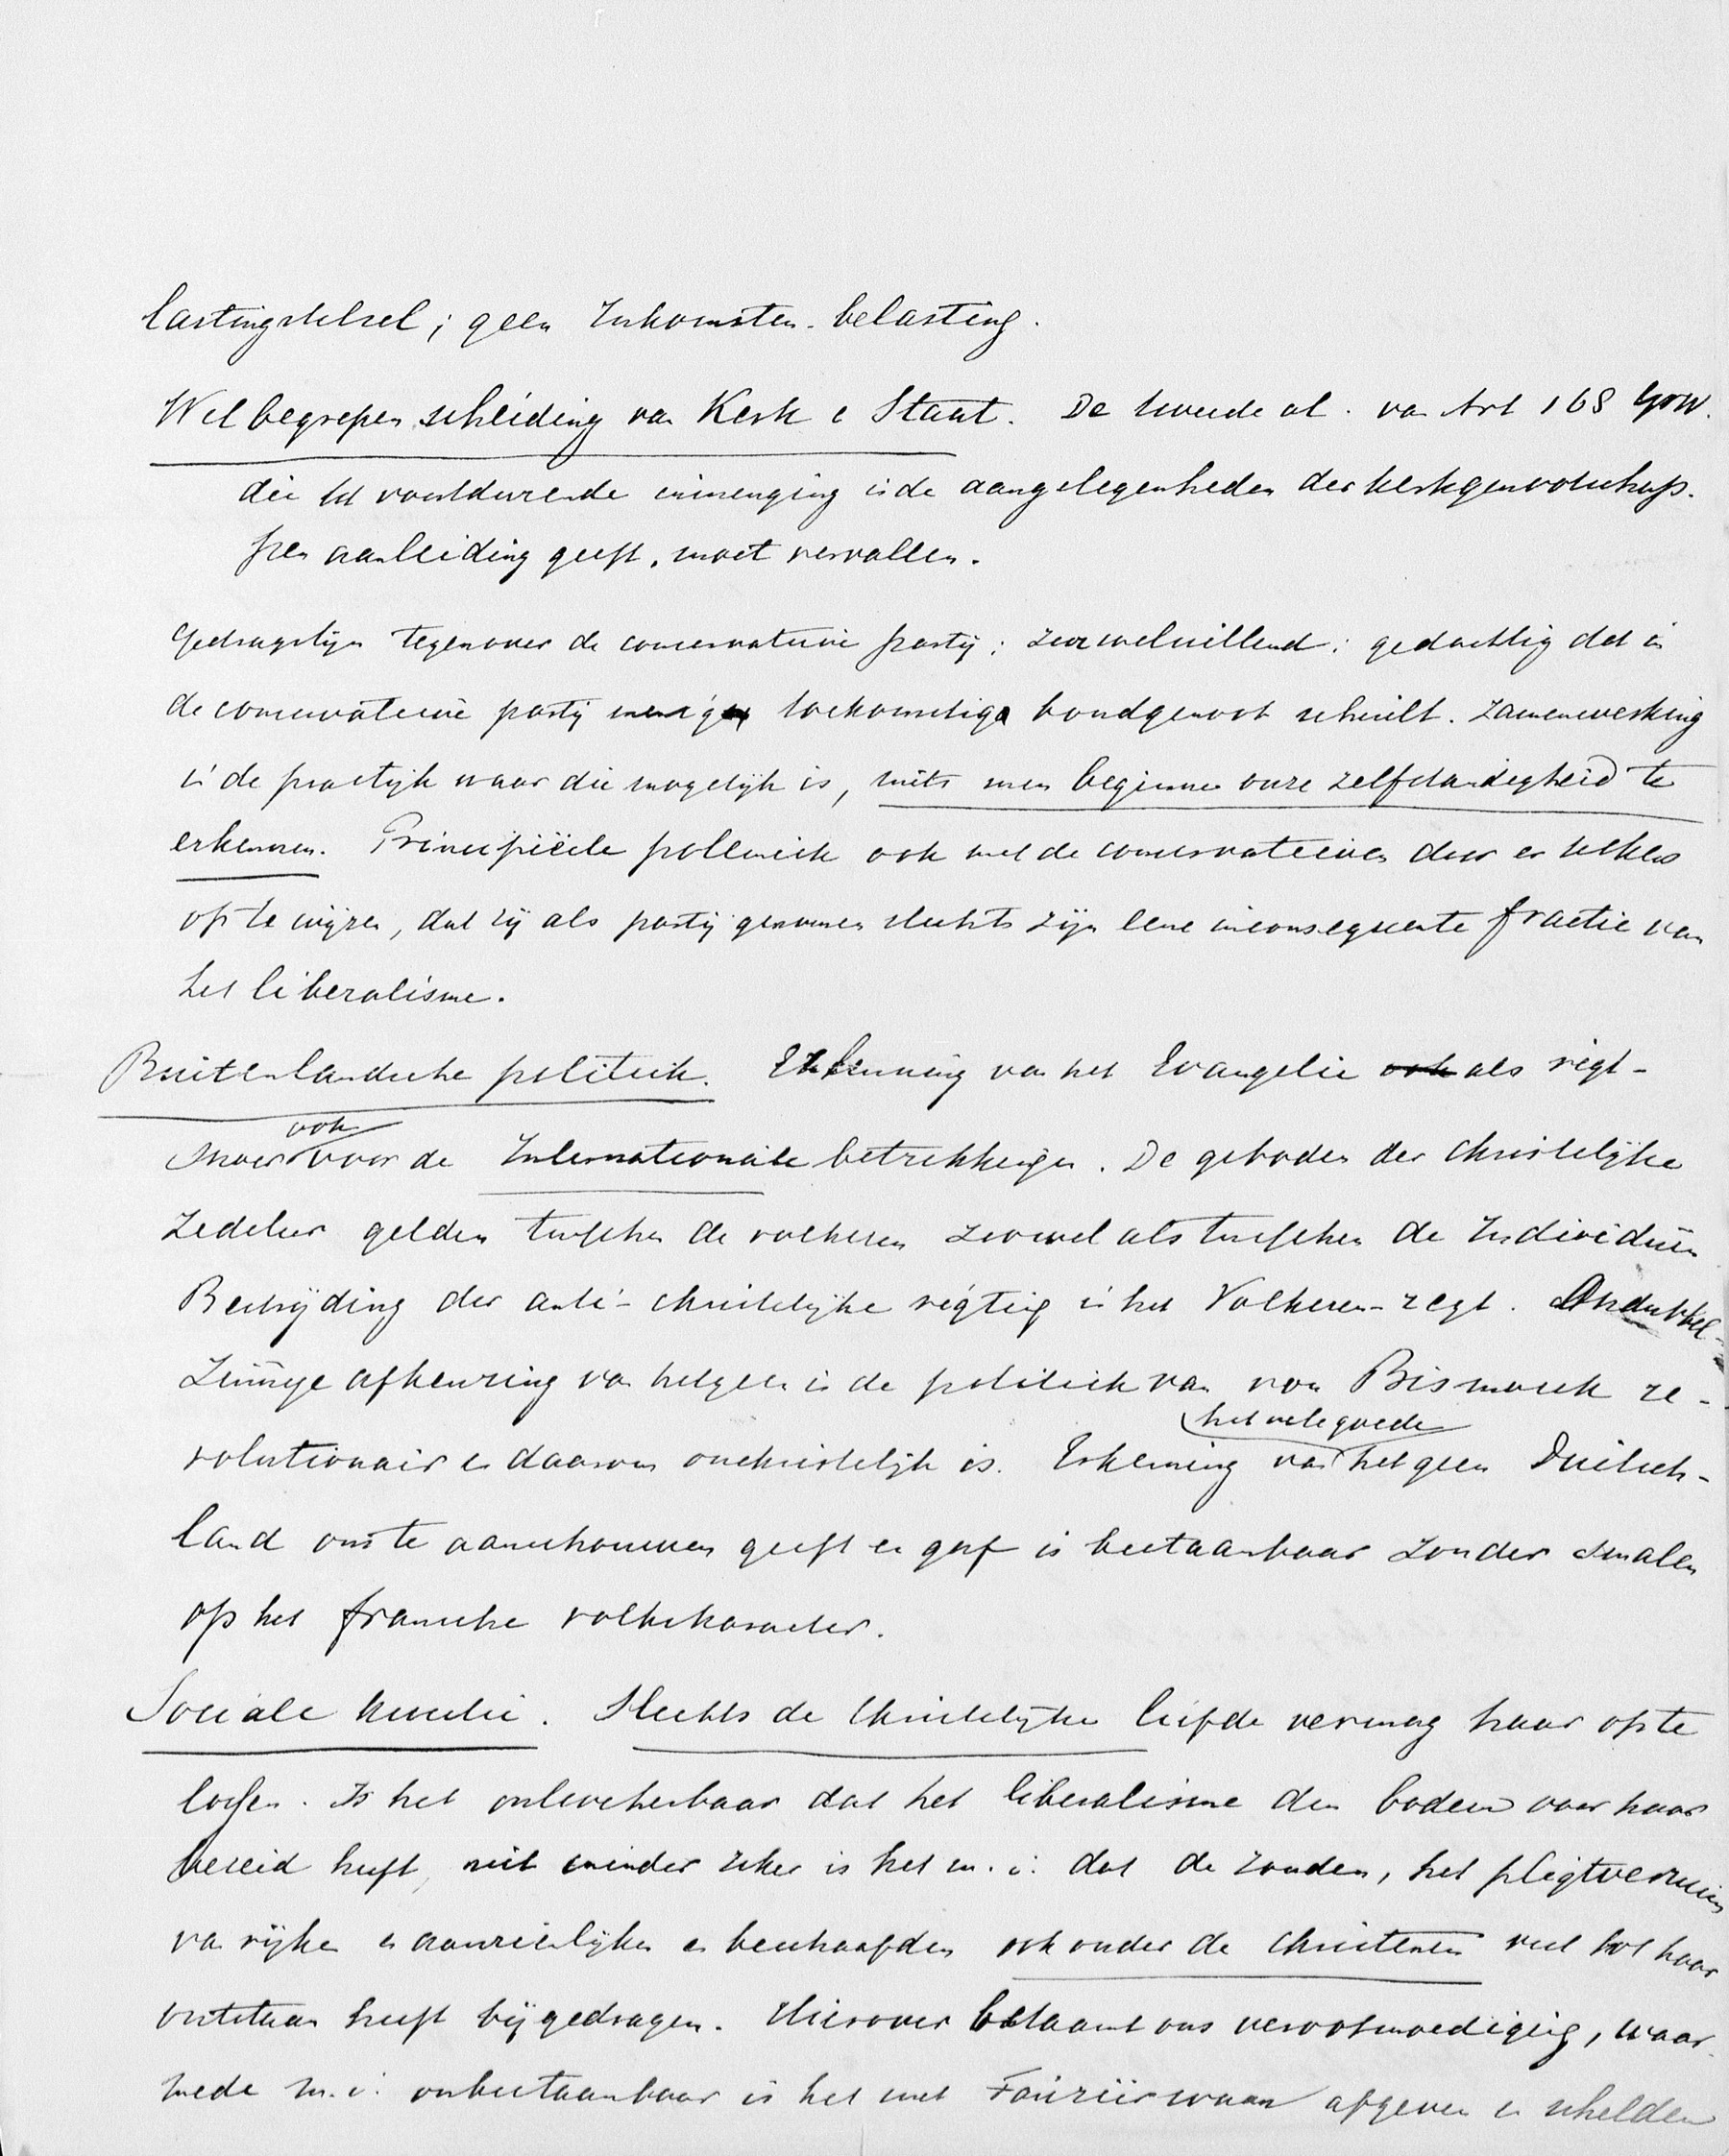 lastingstelsel; geen Inkomsten-belasting.
Wel begrepen scheiding van Kerk en Staat. De tweede al. van Art 168 GrW.
die tot voortdurende inmenging in de aangelegenheden der kerkgenootschap-
pen aanleiding geeft, moet vervallen.
Gedragslijn tegenover de conservatieve partij: zeer welwillend: gedachtig dat in
de conservatieve partij menig toekomstige bondgenoot schuilt. Zamenwerking
in de practijk waar die mogelijk is, mits men beginne onze zelfstandigheid te
erkennen. Principiëele polemiek ook met de conservatieven door er telkens
op te wijzen, dat zij als partij genomen slechts zijn eene inconsequente fractie van
het liberalisme.
Buitenlandsche politiek. Erkenning van het Evangelie ook als rigt-
snoer ook voor de Internationale betrekkingen. De geboden der Christelijke
Zedeleer gelden tusschen de volkeren zoowel als tusschen de Individuën
Bestrijding der anti-christelijke rigting in het Volkeren-regt. Ondubbel-
Zinnige afkeuring van hetgeen in de politiek van von Bismarck re-
volutionair en daarom onchristelijk is. Erkenning van het vele goede hetgeen Duitsch-
land ons te aanschouwen geeft en gaf is bestaanbaar zonder smalen
op het fransche volkskarakter.
Sociale kwestie. Slechts de Christelijke liefde vermag haar op te
lossen. Is het onloochenbaar dat het liberalisme den bodem voor haar
bereid heeft, niet minder zeker is het m. i. dat de zonden, het pligtverzuim
van rijken en aanzienlijken en beschaafden ook onder de Christenen veel tot haar
ontstaan heeft bijgedragen. Hierover betaamt ons verootmoediging, waar-
mede m. i. onbestaanbaar is het met Fariseërswaan afgeven en schelden